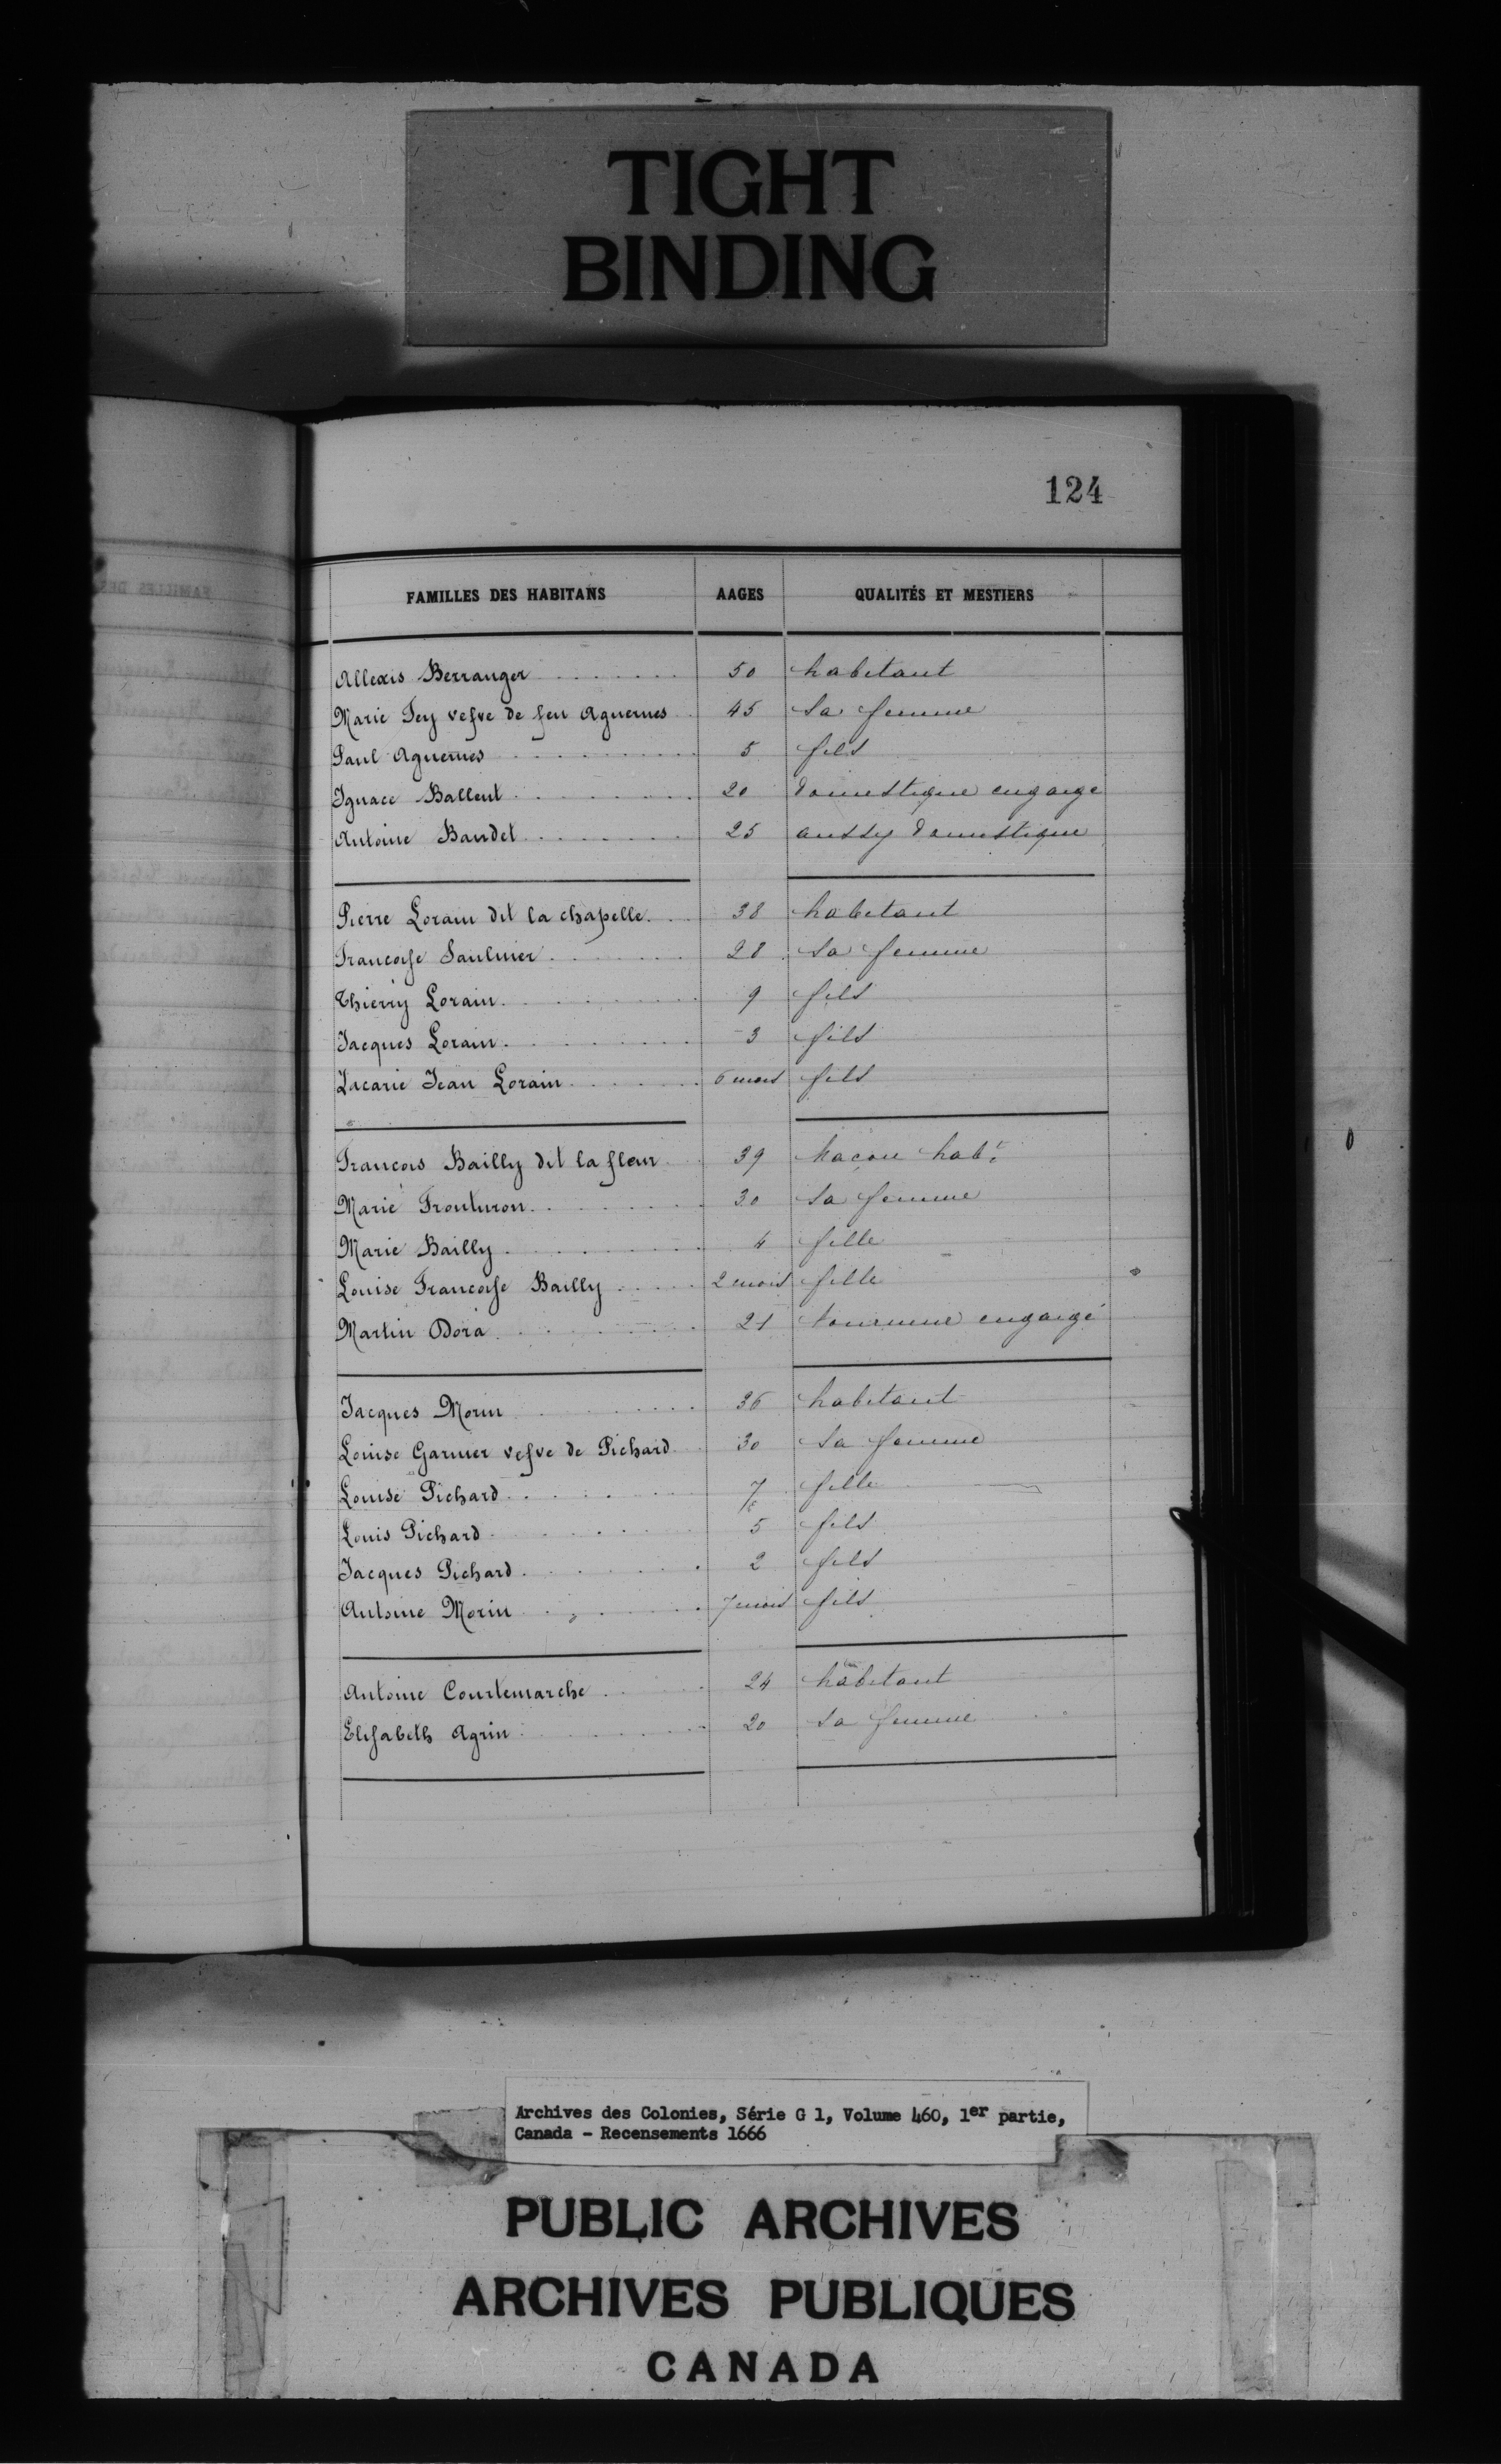 TIGHT
BINDING
124
FAMILLES DES HABITANS AAGES QUALITÉS ET MESTIERS
Allexis Berranger 50 habitant
Marie Fey vefve de feu Aguernes 45 sa femme
Paul Aguernes 5 fils
Ignace Ballent 20 domestique engaigé
Antoine Baudet 25 aussy domestique
Pierre Lorain dit la chapelle 38 habitant
Francoise Saulnier 28 sa femme
Thierry Lorain 9 fils
Jacques Lorain 3 fils
Zacarie Jean Lorain 6 mois fils
Francois Bailly dit la fleur 39 Maçon habt
Marie Frouturon 30 sa femme
Marie Bailly 4 fille
Louise Francoise Bailly 2 mois fille
Martin Dora 21 engaigé
Jacques Morin 36 habitant
Louise Garnier vefve de Pichard 30 sa femme
Louise Pichard 7 fille
Louis Pichard 5 fils
Jacques Pichard 2 fils
Antoine Morin 7 mois fils
Antoine Courtemarche 24 habitant
Elisabeth Agrin 20 sa femme
Archives des Colonies, Série G 1, Volume 460, 1er partie,
Canada - Recensements 1666
PUBLIC ARCHIVES
ARCHIVES PUBLIQUES
CANADA